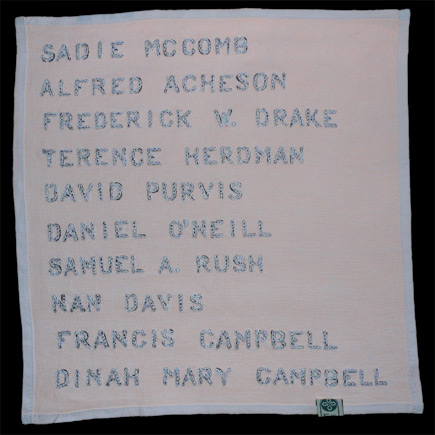 SADIE MCCOMB
ALFRED ACHESON
FREDERICK W. DRAKE
TERENCE HERDMAN
DAVID PURVIS
DANIEL O'NEILL
SAMUEL A. RUSH
NAN DAVIS
FRANCIS CAMPBELL
DINAH MARY CAMPBELL